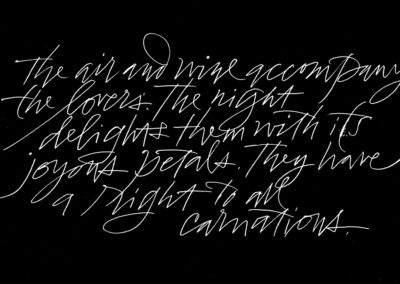 The air and wine accompany
the lovers. The night
delights them with its
joyous petals. They have
a right to all
carnations.